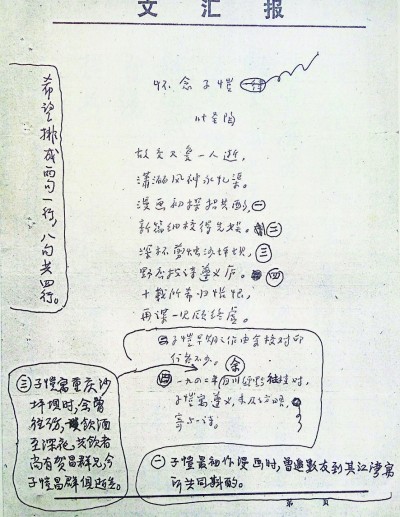 文汇报
怀念子恺
叶圣陶
故交又复一人逝，
潇洒风神永忆渠。
漫画初探招共酌，㊀
新篇细校得先娱。㊁
深杯剪烛沙坪坝，㊂
野店投诗遵义庐。㊃
十载所希归怅恨，
再谋一见愿终虚。
希望排成两句一行，八句共四行。
㊁子恺早期之作由余校对印
行者不少。
㊃一九四二年自川经黔往桂时，
子恺寓遵义，未及访晤，
寄与一诗。
㊂子恺寓重庆沙
坪坝时，余曾
往访，饮酒
至深夜，共饮者
尚有贺昌群兄，今
子恺昌群俱逝世。
㊀子恺最初作漫画时，曾邀数友到其江湾寓
所共同斟酌。
第 页